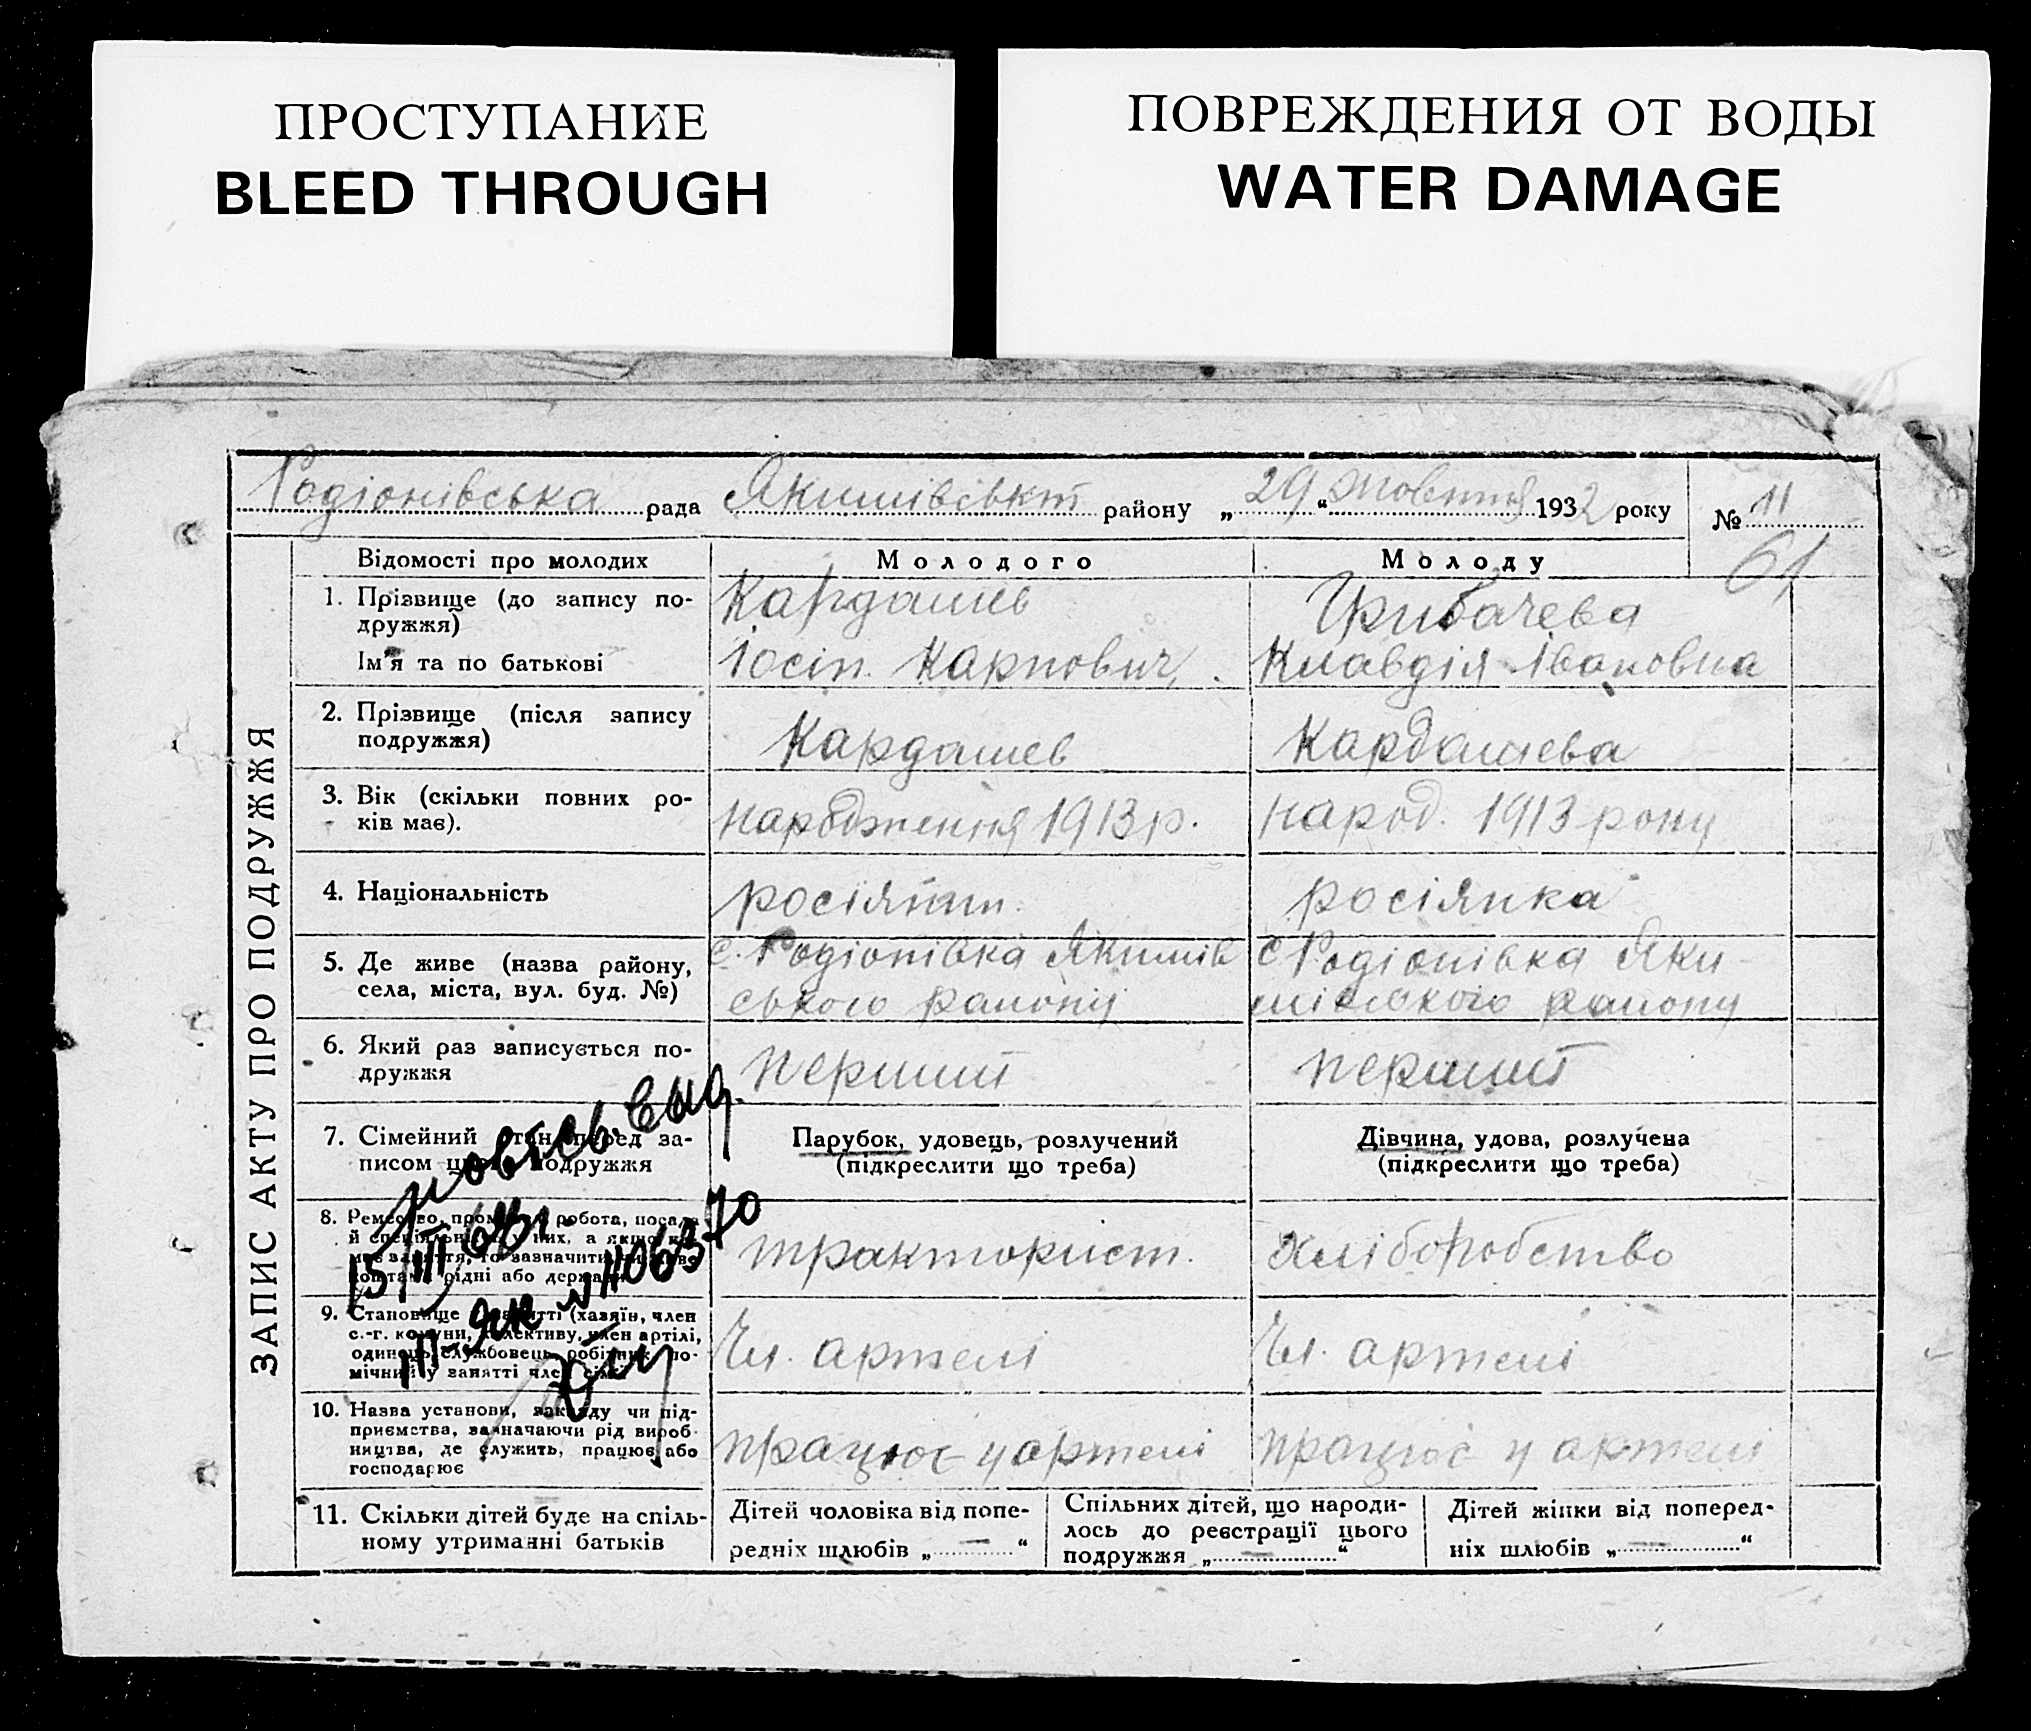 ПРОСТУПАНИЕ
BLEED THROUGH
ПОВРЕЖДЕНИЯ ОТ ВОДЫ
WATER DAMAGE
Родіонівська рада Якимівськ району „29“ жовтня 1932 року № 11
61
ЗАПИС АКТУ ПРО ПОДРУЖЖЯ
Відомості про молодих Молодого Молоду
1. Прізвище (до запису по-
дружжя)
Кардашев Грибачева
Ім'я та по батькові Іосіп Карпович, Клавдія Івановна
2. Прізвище (після запису
подружжя)
Кардашев Кардашева
3. Вік (скільки повних ро-
ків має).
народження 1913 р. народ. 1913 року
4. Національність росіянин росіянка
5. Де живе (назва району,
села, міста, вул. буд. №)
с. Родіонівка Якимів
ського району
с Родіонівка Яки-
мівського району
6. Який раз записується по-
дружжя
перший перший
7. Сімейний стан перед за-
писом цього подружжя
Парубок, удовець, розлучений
(підкреслити що треба)
Дівчина, удова, розлучена
(підкреслити що треба)
8. Ремество, робота, посада
й у них, а якщо
зазначити
рідні або держави
тракторист. хліборобство
9. Становище в занятті (хазяїн, член
с.-г. комуни, колективу, член артілі,
одинець, службовець, робітник, по-
мічний у занятті член сім'ї
Чл. артелі Чл. артелі
10. Назва установи, закладу чи під-
приємства, зазначаючи рід вироб-
ництва, де служить, працює або
господарює
працює у артелі працює у артелі
11. Скільки дітей буде на спіль-
ному утриманні батьків
Дітей чоловіка від попе-
редніх шлюбів „ — “
Спільних дітей, що народи-
лось до реєстрації цього
подружжя „ — “
Дітей жінки від поперед-
ніх шлюбів „ — “
повт. св. выд.
15/III 68г.
III-ЯК № 1106370